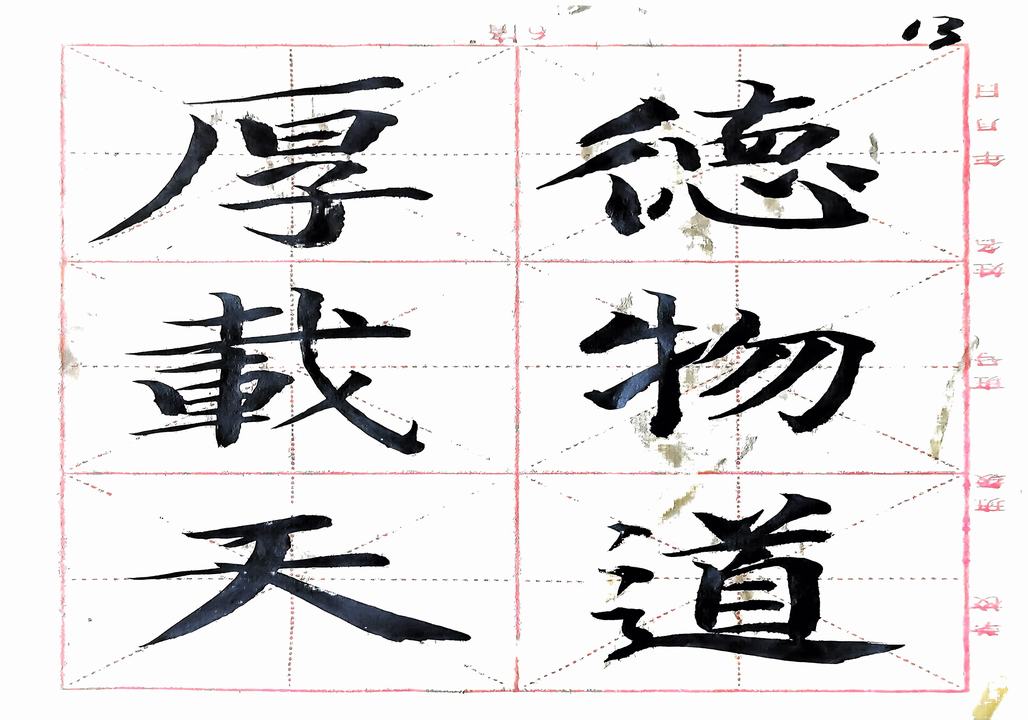 13
厚德
載物
天道